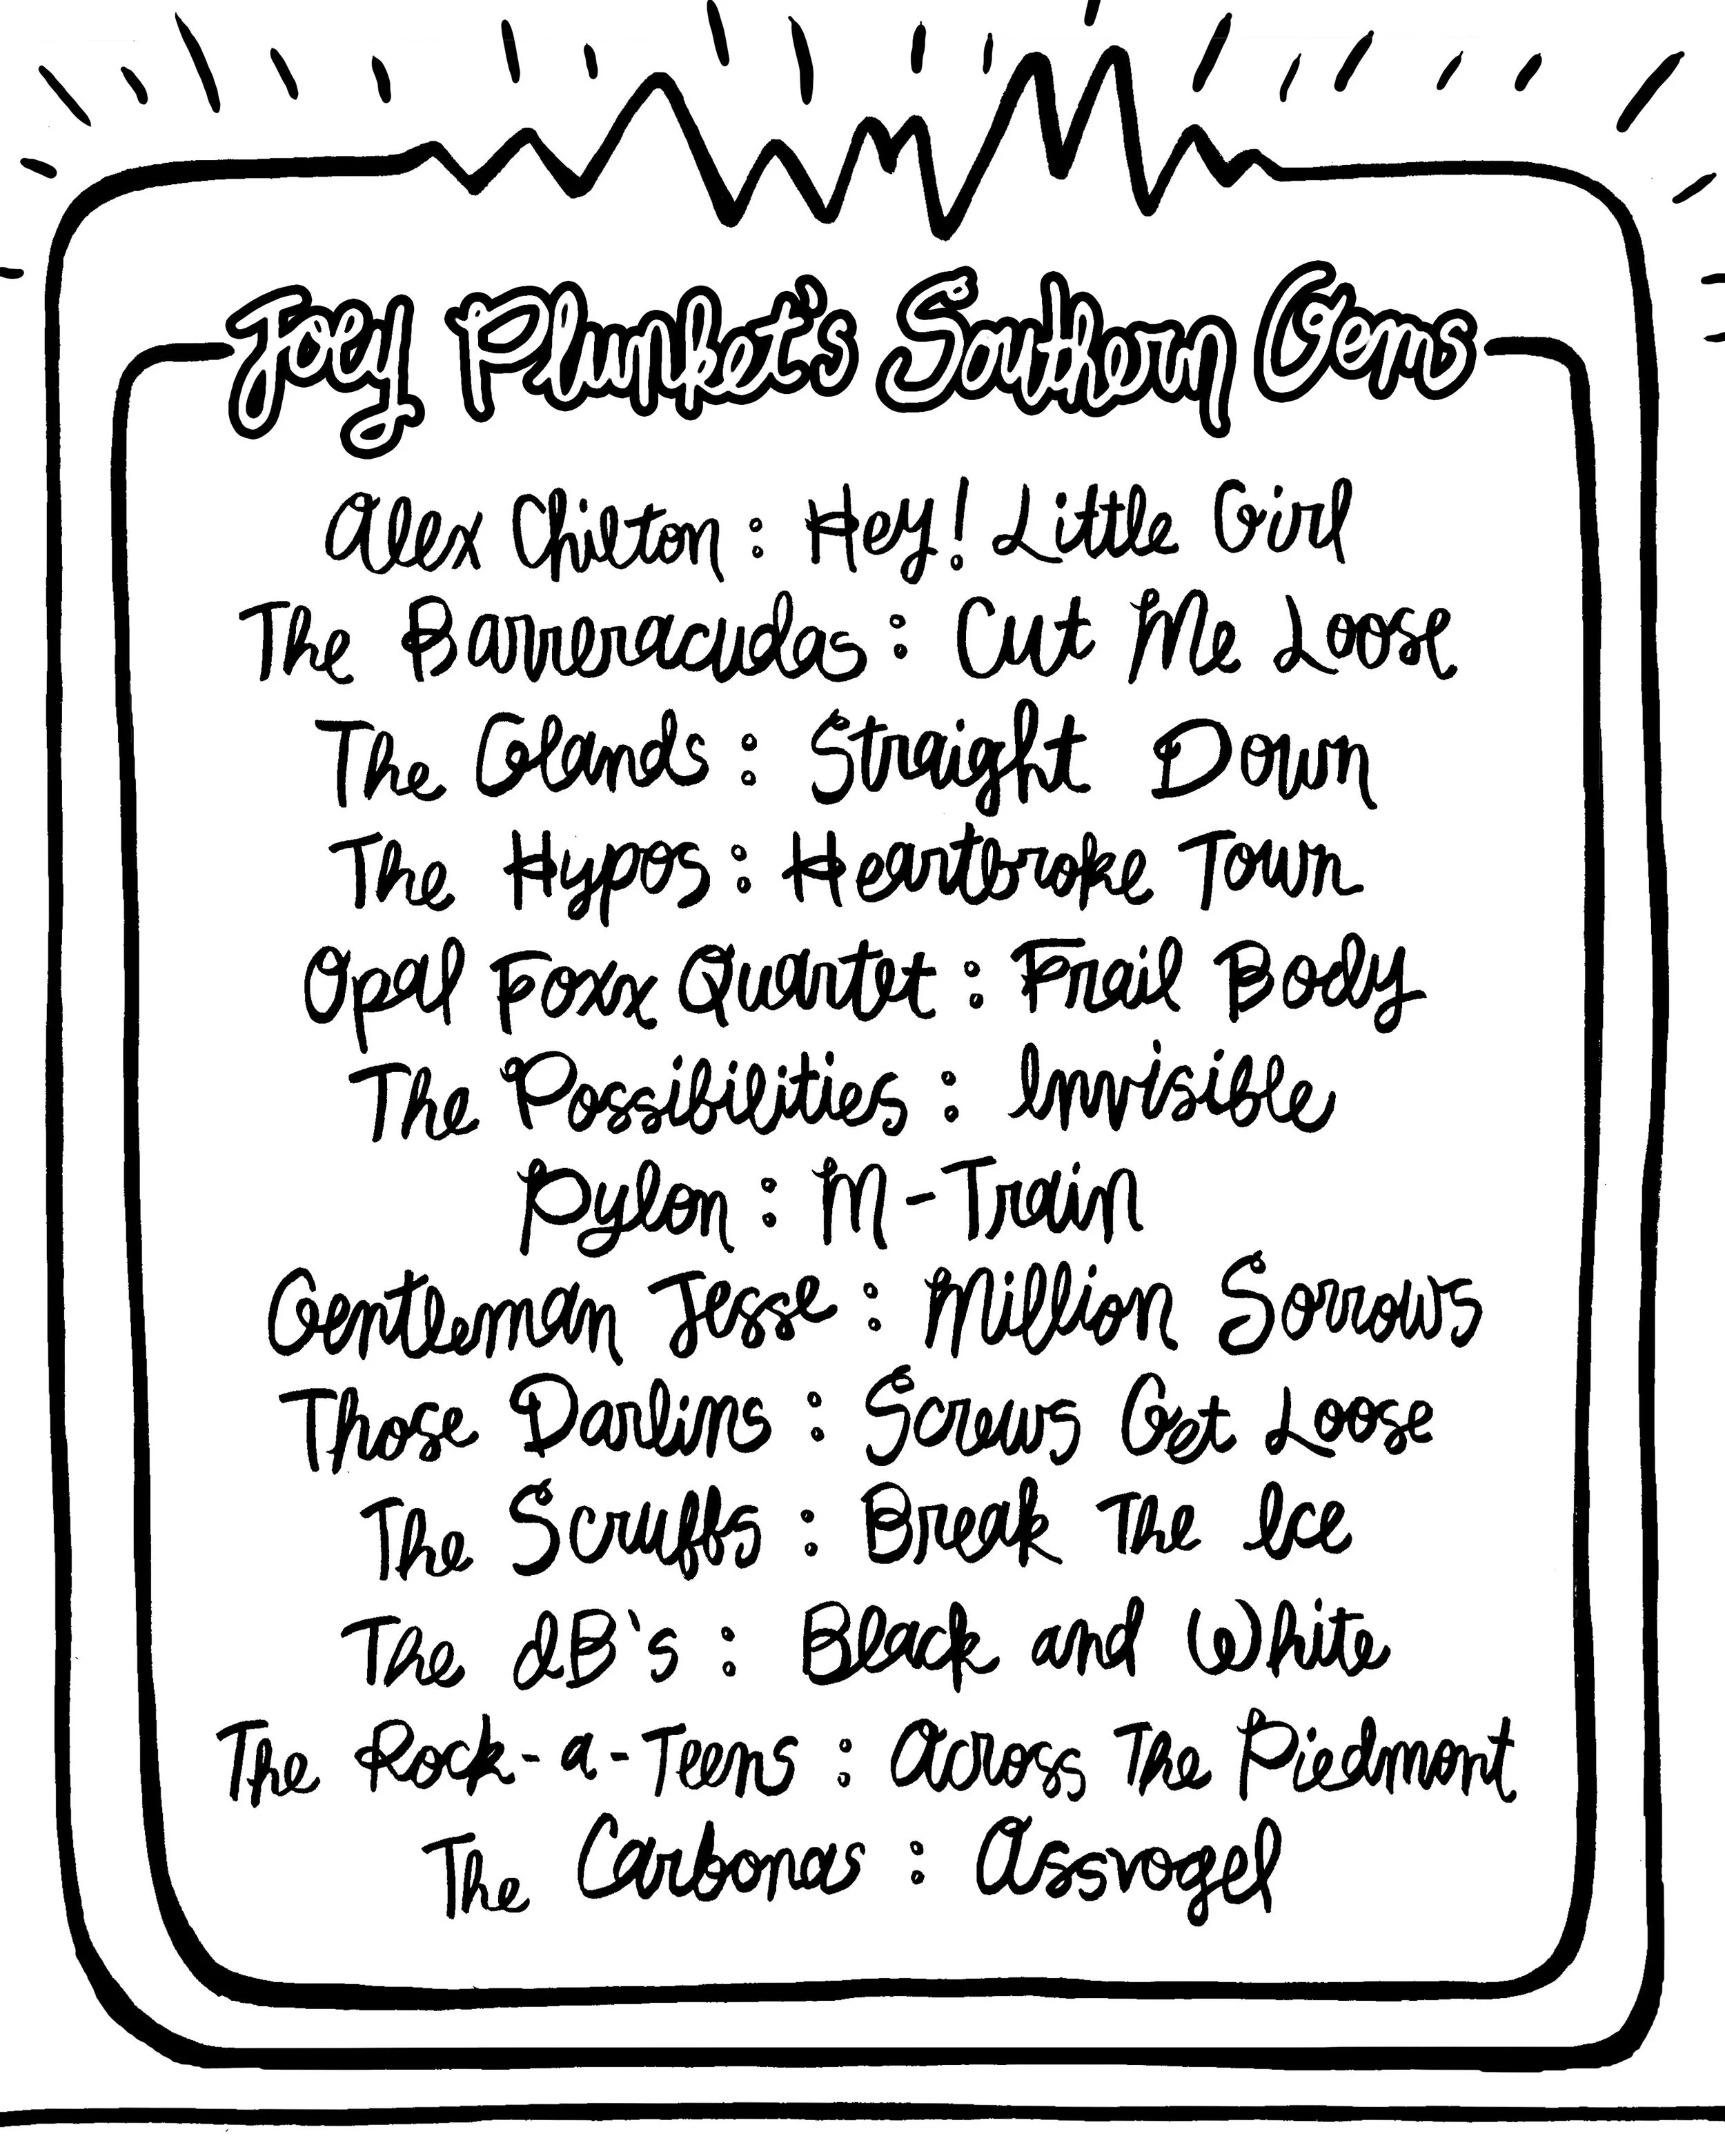 Joey Plunket's Southern Gems
Alex Chilton : Hey! Little Girl
The Barreracudas : Cut Me Loose
The Glands : Straight Down
The Hypos : Heartbroke Town
Opal Foxx Quartet : Frail Body
The Possibilities : Invisible
Pylon : M-Train
Gentleman Jesse : Million Sorrows
Those Darlins : Screws Get Loose
The Scruffs : Break The Ice
The dB's : Black and White
The Rock-a-Teens : Across The Piedmont
The Carbonas : Assvogel